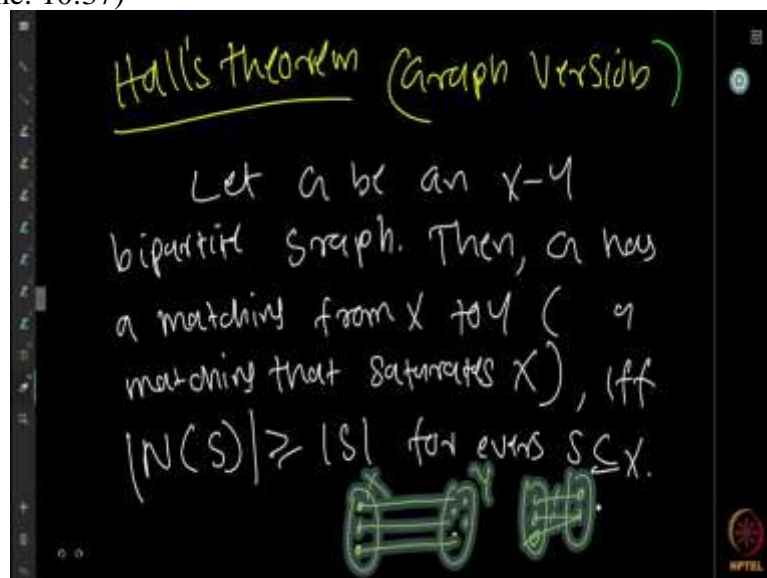 Hall's theorem (Graph Version)
Let G be an X-Y
bipartite graph. Then, G has
a matching from X to Y ( a
matching that saturates X), iff
|N(S)| ≥ |S| for every S ⊆ X.
X Y
NPTEL